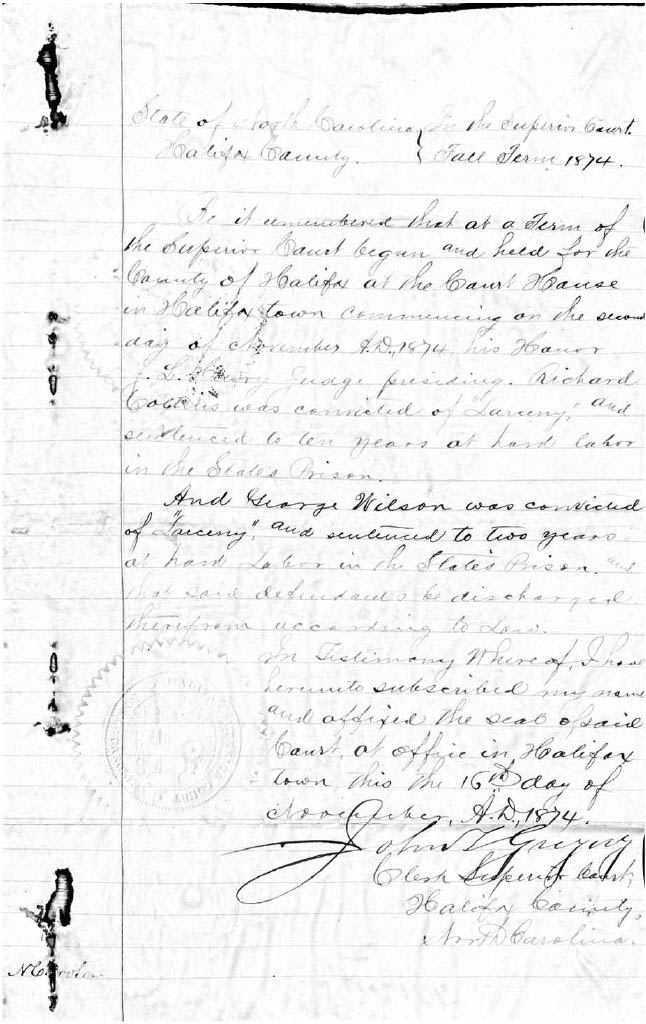 State of North Carolina } In the Superior Court.
Halifax County. } Fall Term 1874.
Be it remembered that at a Term of
the Superior Court begun and held for the
County of Halifax at the Court House
in Halifax town commencing on the second
day of November A.D., 1874, his Honor
J. L. Henry Judge presiding. Richard
was convicted of "Larceny," and
sentenced to ten years at hard labor
in the States Prison.
And George Wilson was convicted
of "Larceny", and sentenced to two years
at hard Labor in the State's Prison. and
that said defendants be discharged
therefrom according to Law.
In Testimony Whereof, I have
hereunto subscribed my name
and affixed the seal of said
Court, at office in Halifax
town this the 16th day of
November, A.D., 1874.
John T Gregory
Clerk Superior Court,
Halifax County,
North Carolina.